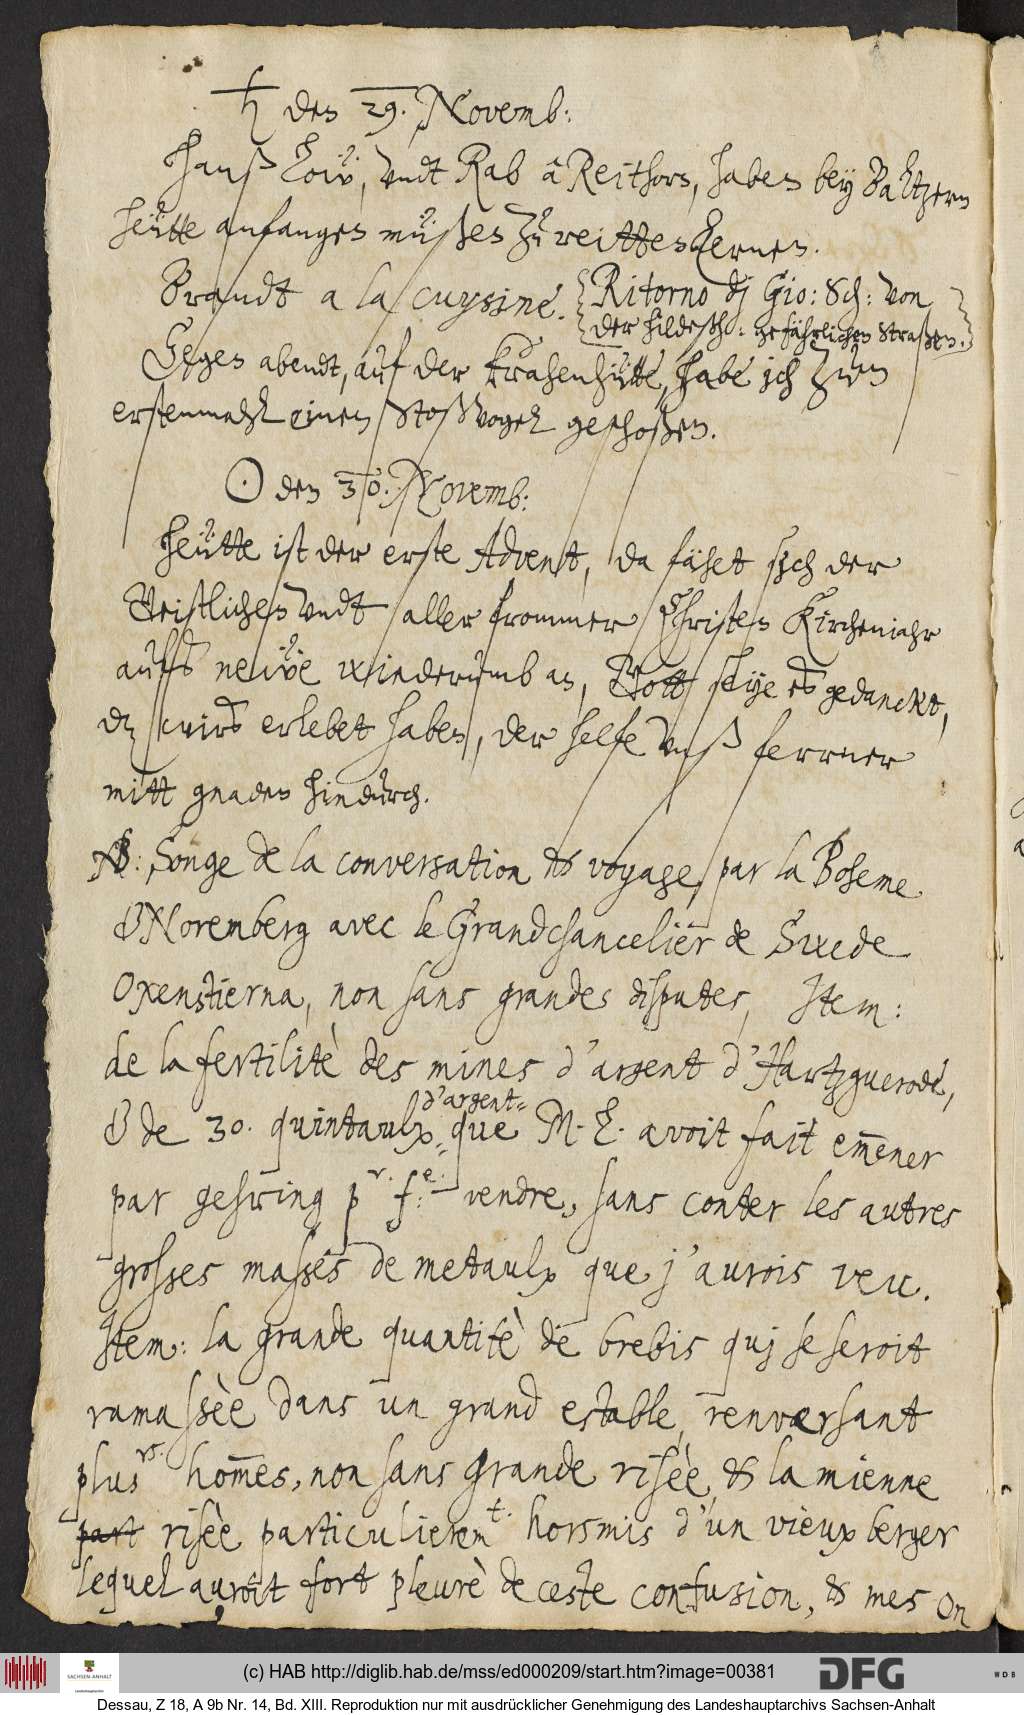 ♄ den 29. Novemb:
Hanß Löw, undt Rab à Reithors, haben bey Baltzern
heütte anfangen müßen zu reitten lernen.
Brandt a la cuysine. {Ritorno dj Gio: Sch: von
der Hildesh: gefährlichen Straßen.}
Gegen abendt, auf der Krahenhütte, habe ich zum
erstenmahl einen Stoßvogel geschoßen.
☉ den 30. Novemb:
Heütte ist der erste Advent, da fähet sich der
Geistlichen undt aller frommer Christen Kirchenjahr
aufs neüe wiederumb an, Gott seye es gedanckt,
dz wirs erlebet haben, der helfe unß ferrner
mitt gnaden hindurch.
NB: Songe de la conversation & voyage, par la Boheme
& Noremberg avec le Grandchancelier de Swede
Oxenstierna, non sans grandes disputes, Item:
de la fertilitè des mines d'argent d'Hartzguerode,
& de 30. quintaulx d'argent que M. E. avoit fait em̅ener
par gehring pr. fe. vendre, sans conter les autres
grosses masses de metaulx que j'aurois veu.
Item: la grande quantitè de brebis quj se seroit
ramassèe dans un grand estable, renversant
plusrs. hom̅es, non sans grande risèe, & la mienne
part risèe particulierem̅t. horsmis d'un vieux berger
lequel auroit fort pleurè de ceste confusion, & mes
On
(c) HAB http://diglib.hab.de/mss/ed000209/start.htm?image=00381
SACHSEN-ANHALT
DFG
WDB
Dessau, Z 18, A 9b Nr. 14, Bd. XIII. Reproduktion nur mit ausdrücklicher Genehmigung des Landeshauptarchivs Sachsen-Anhalt